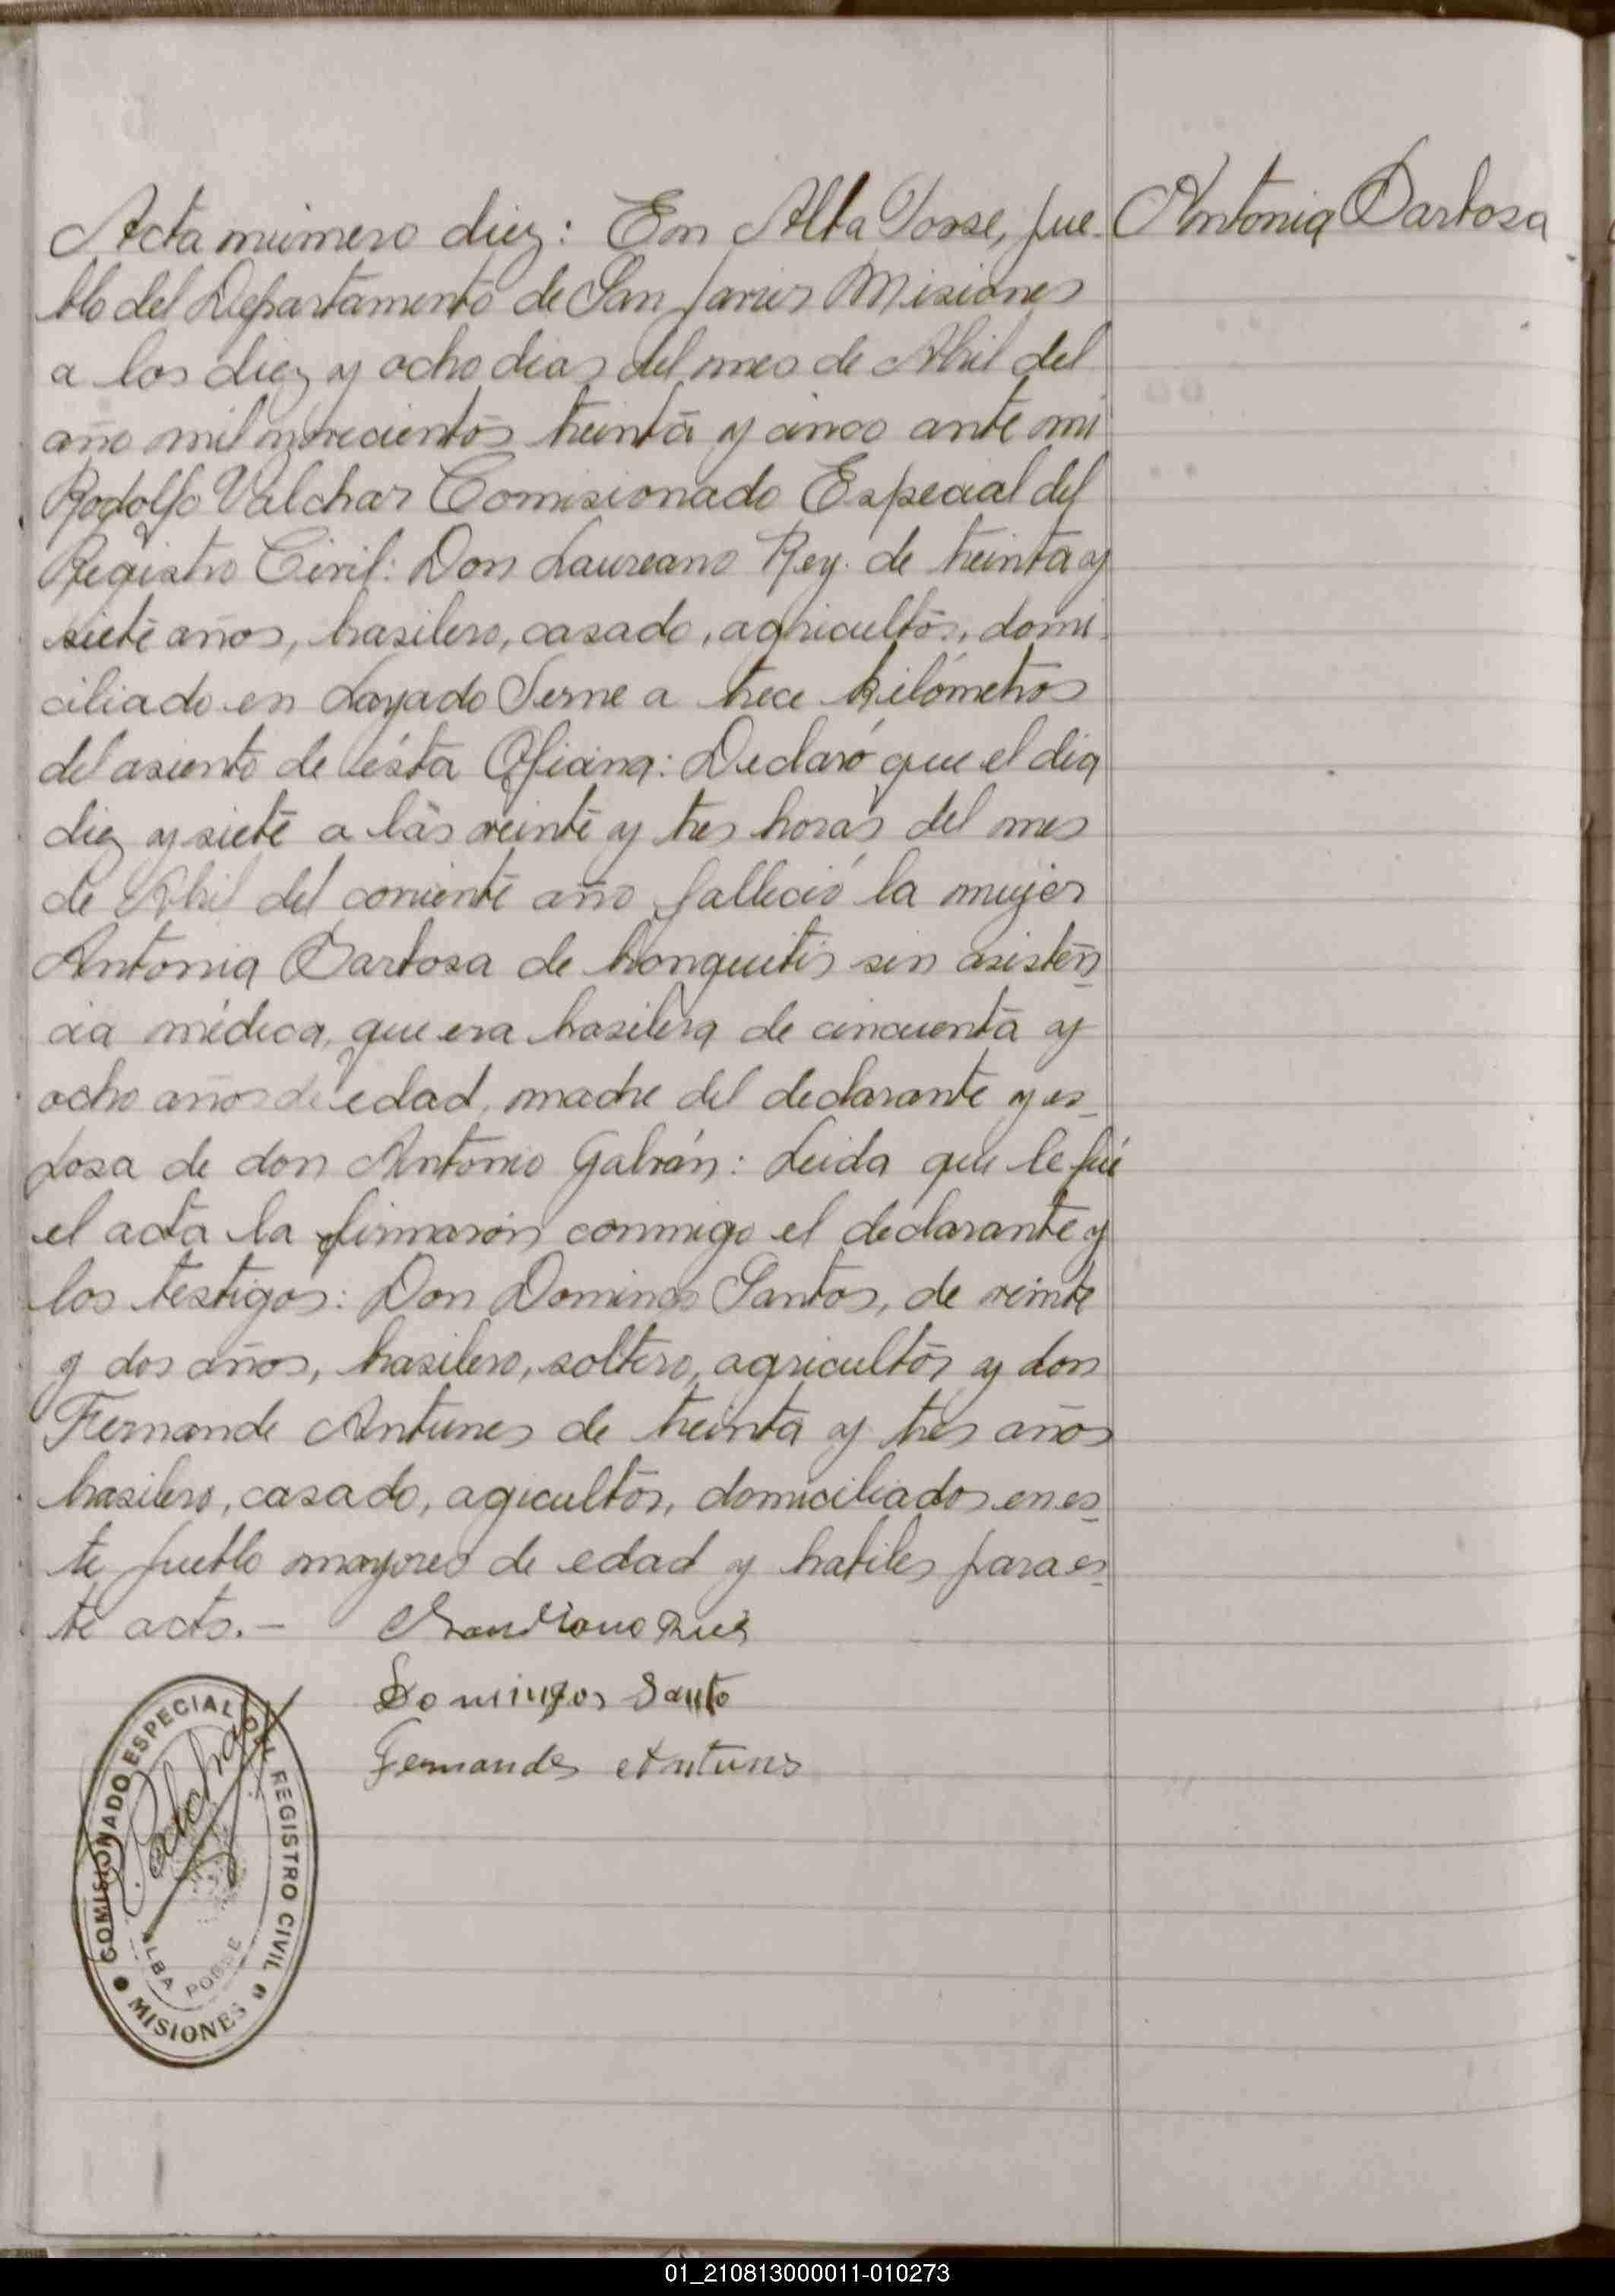 Acta número diez: En Alba Posse, pue-
Antonia Barbosa
blo del Departamento de San Javier Misiones
a los diez y ocho dias del mes de Abril del
año mil novecientos treinta y cinco ante mi
Rodolfo Valchar Comisionado Especial del
Registro Civil: Don Laureano Rey. de treinta y
siete años, brasilero, casado, agricultor, domi-
ciliado en Layado Serne a trece kilómetros
del asiento de ésta Oficina: Declaró que el dia
diez y siete a las veinte y tres horas del mes
de Abril del corriente año falleció la mujer
Antonia Barbosa de bronquitis sin asisten-
cia médica, que era brasilera de cincuenta y
ocho años de edad, madre del declarante y es-
posa de don Antonio Galván: Leida que le fué
el acta la firmaron conmigo el declarante y
los testigos: Don Domingo Santos, de veinte
y dos años, brasilero, soltero, agricultor y don
Fernande Antunes de treinta y tres años
brasilero, casado, agicultor, domiciliados en es-
te pueblo mayores de edad y habiles para es-
te acto.-
Domingos Santo
Fernandes Antunes
COMISIONADO ESPECIAL DEL REGISTRO CIVIL
ALBA POSSE
MISIONES
01_210813000011-010273